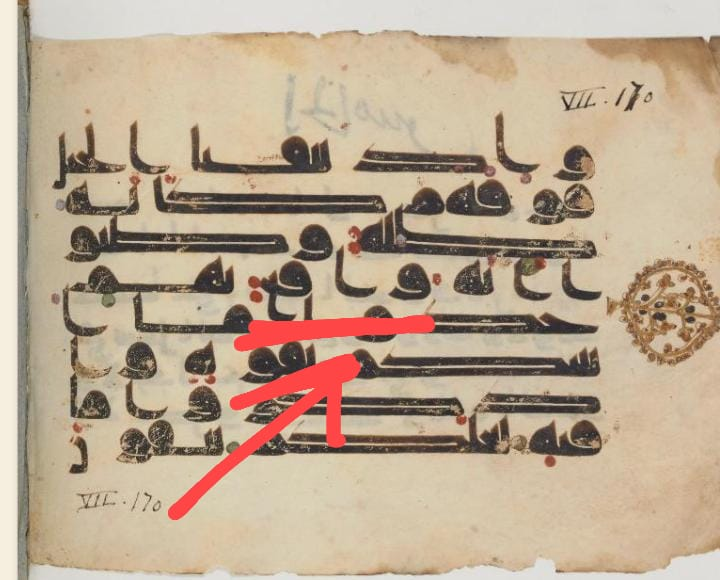 VII. 170
واذ نتقنا الجبل
فوقهم كانه
ظلة وظنو
ا انه واقع بهم
خذوا ما ا
تينكم بقوة وا
ذكروا ما
فيه لعلكم تتقون
VII. 170